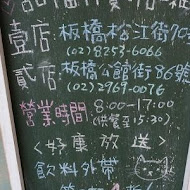 壹店:板橋松江街103
(02)8253-6066
貳店:板橋公館街86號
(02)2969-0076
營業時間:8:00-17:00
(供餐至15:30)
〈好康放送〉
飲料外帶